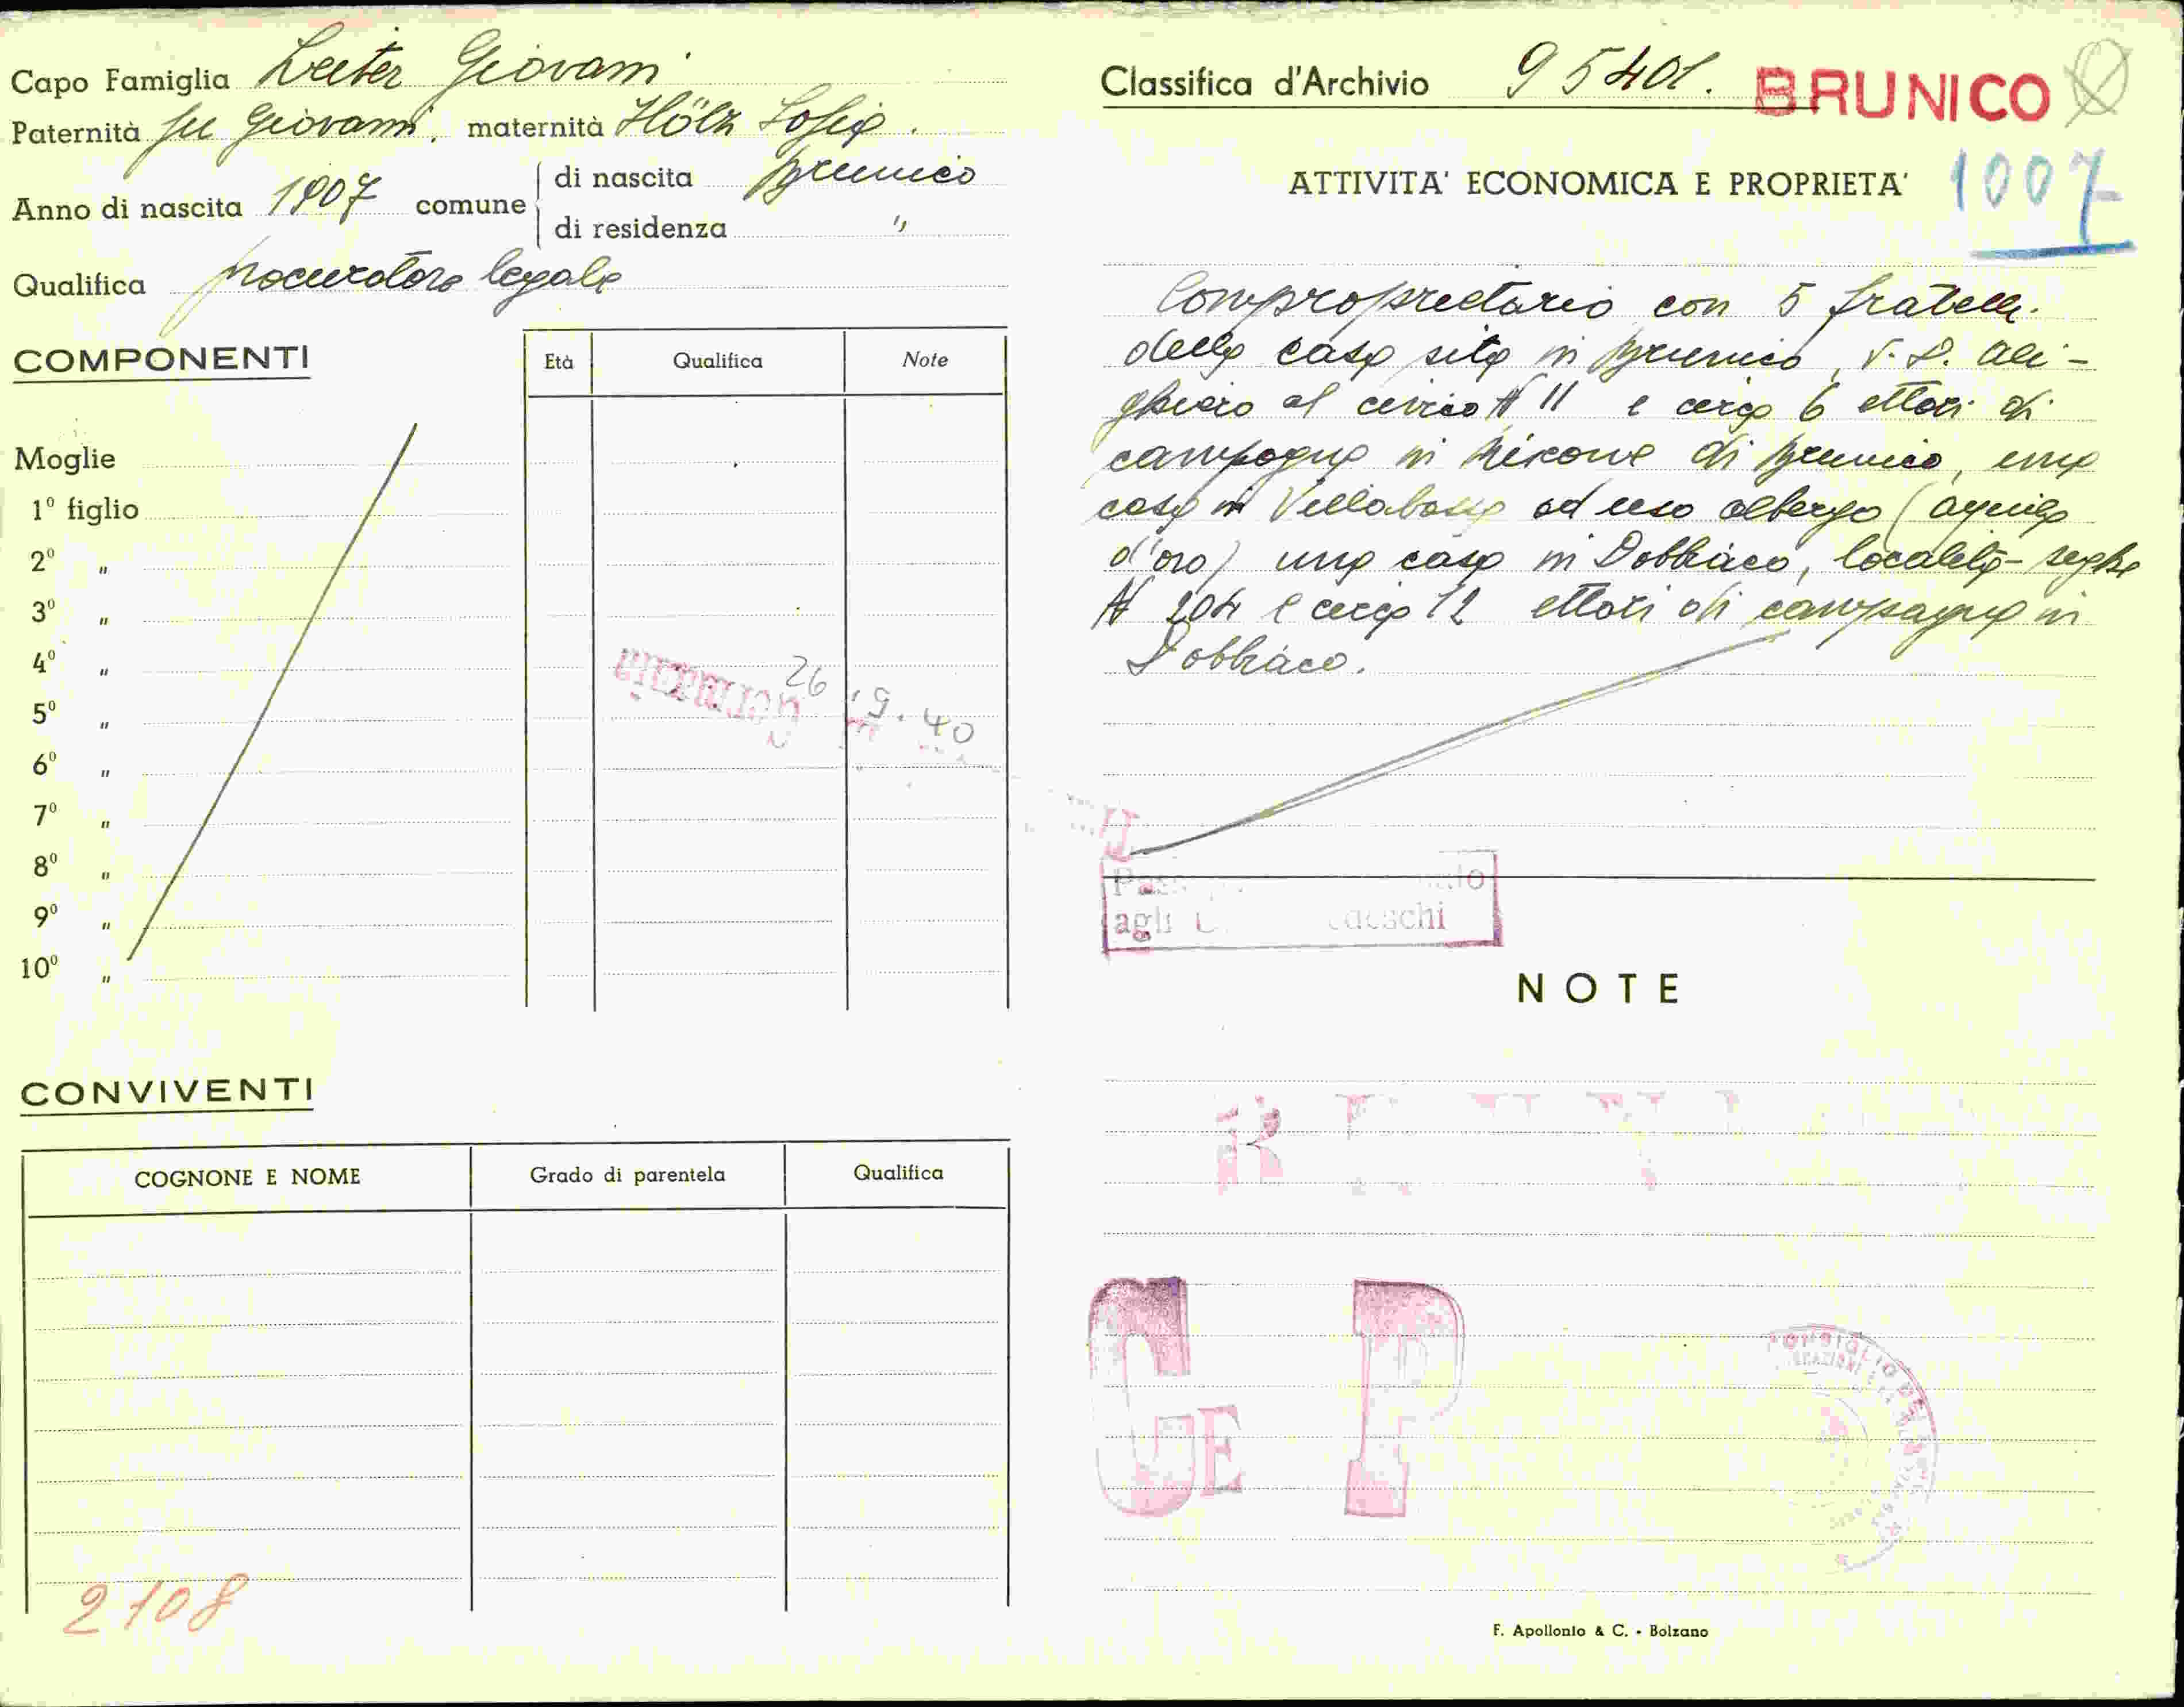 Capo Famiglia Leiter Giovanni
Paternità fu Giovanni, maternità Hölzl Sofia.
Anno di nascita 1907 comune
di nascita Brunico
di residenza "
Qualifica procuratore legale
COMPONENTI
Età Qualifica Note
Moglie
1º figlio
2º "
3º "
4º "
5º "
6º "
7º "
8º "
9º "
10º "
Germania
26.9.40
CONVIVENTI
COGNONE E NOME Grado di parentela Qualifica
2108
Classifica d'Archivio 95401. BRUNICO
1007
ATTIVITA' ECONOMICA E PROPRIETA'
Comproprietario con 5 fratelli
della casa sita in Brunico, V. D. Ali-
ghiero al civico N 11 e circa 6 ettari di
campagna in Riscone di Brunico, una
casa in Villabassa ad uso albergo (aquila
d'oro) una casa in Dobbiaco, località-seghe
N 204 e circa 12 ettari di campagna in
Dobbiaco.
agli tedeschi
NOTE
R
G E P
CONSIGLIO
F. Apollonio & C. - Bolzano